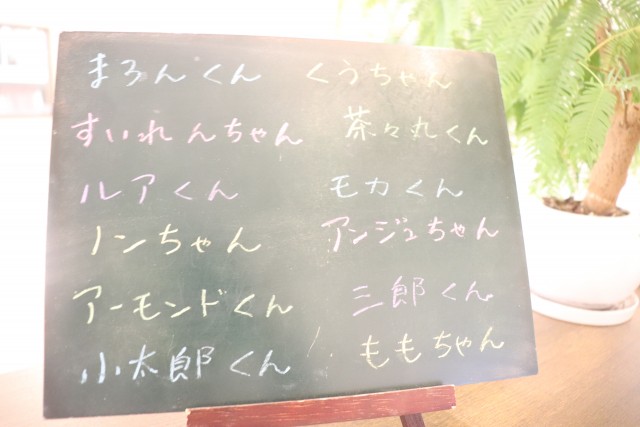 まろんくん くうちゃん
すいれんちゃん 茶々丸くん
ルアくん モカくん
ノンちゃん アンジュちゃん
アーモンドくん 三郎くん
小太郎くん ももちゃん